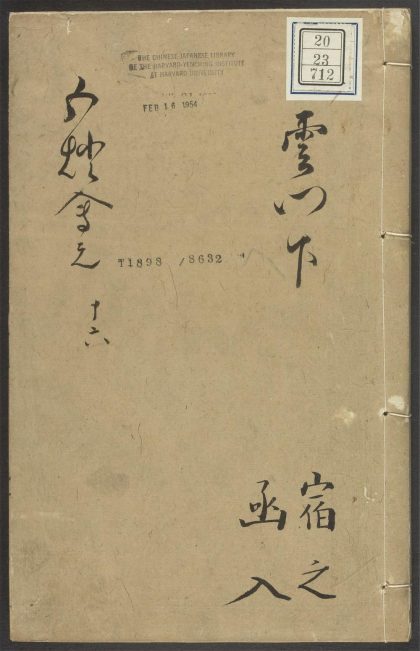 20
23
712
THE CHINESE-JAPANESE LIBRARY
OF THE HARVARD-YENCHING INSTITUTE
AT HARVARD UNIVERSITY
FEB 16 1954
雲門下
五燈會元
十六
T1898 /8632
宿之
函入